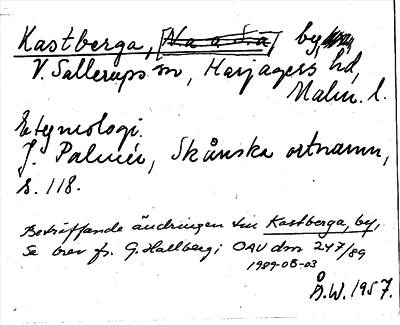 Kastberga, by,
V. Sallerups sn, Harjagers hd,
Malm. l.
Etymologi.
J. Palmér, Skånska ortnamn,
s. 118.
Beträffande ändringen till Kastberga, by,
Se brev fr. G. Hallberg i OAU dnr 247/89
1989-08-03
Å.W. 1957.